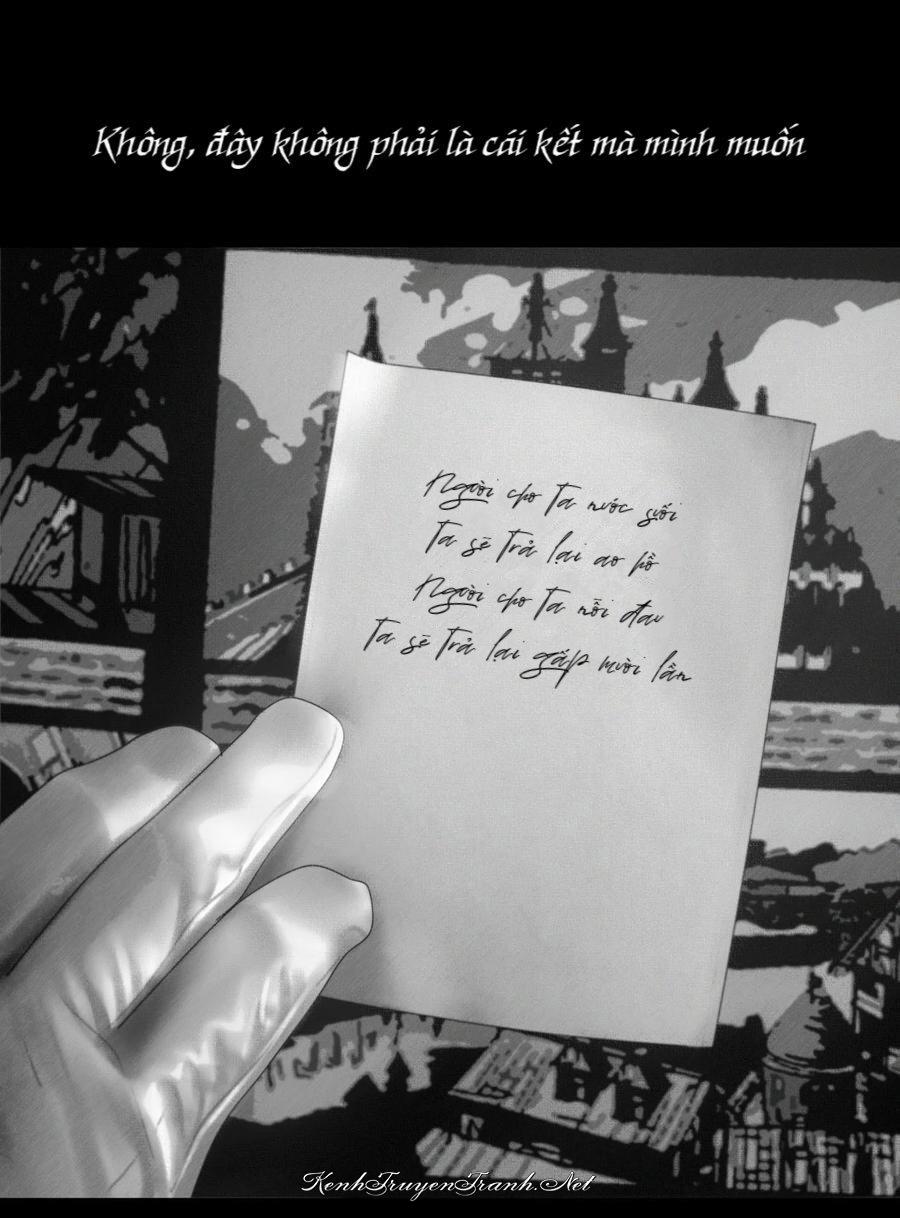 Không, đây không phải là cái kết mà mình muốn
Người cho ta nước suối
Ta sẽ trả lại ao hồ
Người cho ta nỗi đau
Ta sẽ trả lại gấp mười lần
KenhTruyenTranh.Net